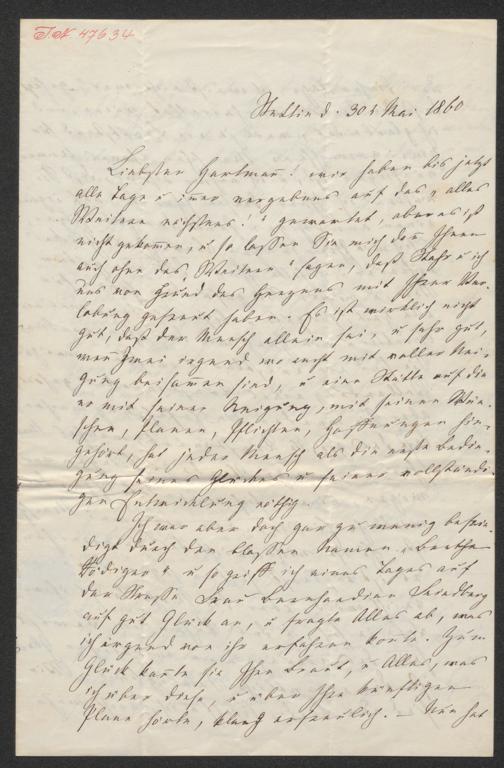 I.N. 47634
Stettin d. 30t Mai 1860
Liebster Hartmann! wir haben bis jetzt
alle Tage u immer vergebens auf das „alles
Weitere nächstens!“ gewartet, aber es ist
nicht gekommen, u so lassen Sie mich denn Ihnen
auch ohne das „Weitere“ sagen, daß Stahr u ich
uns von Grund des Herzens mit Ihrer Ver-
lobung gefreut haben. Es ist wirklich nicht
gut, daß der Mensch allein sei, u sehr gut,
wenn Zwei irgend wo recht mit voller Nei-
gung beisammen sind, u eine Stätte auf die
er mit seiner Neigung, mit seinen Wün-
schen, Planen, Pflichten, Hoffnungen hin-
gehört, hat jeder Mensch als die erste Bedin-
gung seines Glückes u seiner vollständi-
gen Entwicklung nöthig.
Ich war aber doch gar zu wenig befrie-
digt durch den bloßen Namen „Bertha
Rödiger“ u so griff ich eines Tages auf
der Straße Frau Bernhardine Friedberg
auf gut Glück an, u fragte Alles ab, was
ich irgend von ihr erfahren konte. Zum
Glück kante sie Ihre Braut, u Alles, was
ich über diese, u über Ihre künftigen
Plane hörte, klang erfreulich. — Nun hat